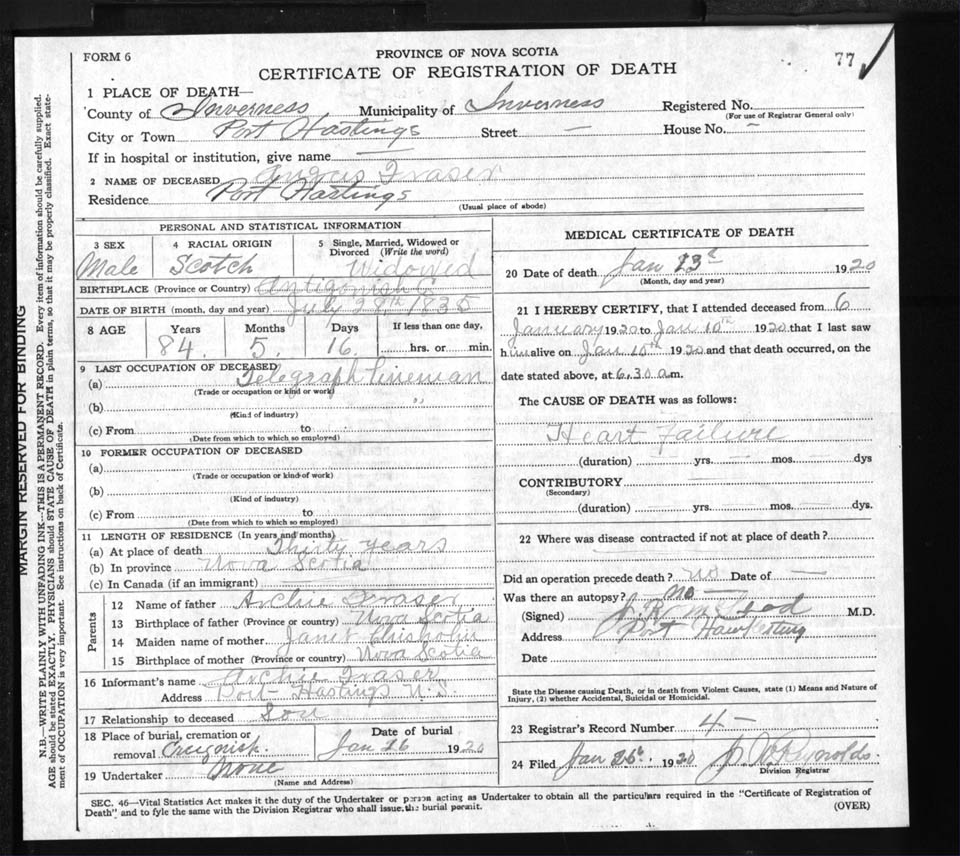 FORM 6
PROVINCE OF NOVA SCOTIA
77
CERTIFICATE OF REGISTRATION OF DEATH
1 PLACE OF DEATH—
County of Inverness Municipality of Inverness Registered No.
(For use of Registrar General only)
City or Town Port Hastings Street — House No. —
If in hospital or institution, give name —
2 NAME OF DECEASED Angus Fraser
Residence Port Hastings
(Usual place of abode)
PERSONAL AND STATISTICAL INFORMATION
3 SEX 4 RACIAL ORIGIN 5 Single, Married, Widowed or Divorced (Write the word)
Male Scotch Widowed
BIRTHPLACE (Province or Country) Antigonish
DATE OF BIRTH (month, day and year) July 28th 1835
8 AGE Years Months Days If less than one day,
84. 5. 16. hrs. or min.
9 LAST OCCUPATION OF DECEASED
(a) Telegraph Lineman
(Trade or occupation or kind or work)
(b) "
(Kind of industry)
(c) From to
(Date from which to which so employed)
10 FORMER OCCUPATION OF DECEASED
(a)
(Trade or occupation or kind of work)
(b)
(Kind of industry)
(c) From to
(Date from which to which so employed)
11 LENGTH OF RESIDENCE (In years and months)
(a) At place of death Thirty years
(b) In province Nova Scotia
(c) In Canada (if an immigrant)
Parents
12 Name of father Archie Fraser
13 Birthplace of father (Province or country) Nova Scotia
14 Maiden name of mother Janet Chisholm
15 Birthplace of mother (Province or country) Nova Scotia
16 Informant's name Archie Fraser
Address Port Hastings N.S.
17 Relationship to deceased Son
18 Place of burial, cremation or removal Creignish. Date of burial Jan 26 1920
19 Undertaker None
(Name and Address)
MEDICAL CERTIFICATE OF DEATH
20 Date of death Jan 23 1920
(Month, day and year)
21 I HEREBY CERTIFY, that I attended deceased from 6
January 1920 to Jan 10th 1920 that I last saw
him alive on Jan 10th 1920 and that death occurred, on the
date stated above, at 6.30 a.m.
The CAUSE OF DEATH was as follows:
Heart Failure
(duration) — yrs. — mos. — dys
CONTRIBUTORY —
(Secondary)
(duration) — yrs. — mos. — dys.
22 Where was disease contracted if not at place of death?
Did an operation precede death? No Date of —
Was there an autopsy? No —
(Signed) M.D.
Address Port
Date
State the Disease causing Death, or in death from Violent Causes, state (1) Means and Nature of
Injury, (2) whether Accidental, Suicidal or Homicidal.
23 Registrar's Record Number 4 —
24 Filed Jan 26 1920 Reynolds.
Division Registrar
SEC. 46—Vital Statistics Act makes it the duty of the Undertaker or person acting as Undertaker to obtain all the particulars required in the "Certificate of Registration of
Death" and to fyle the same with the Division Registrar who shall issue the burial permit.
(OVER)
MARGIN RESERVED FOR BINDING
N.B.—WRITE PLAINLY WITH UNFADING INK—THIS IS A PERMANENT RECORD. Every item of information should be carefully supplied.
AGE should be stated EXACTLY. PHYSICIANS should STATE CAUSE OF DEATH in plain terms, so that it may be properly classified. Exact state-
ment of OCCUPATION is very important. See instructions on back of Certificate.